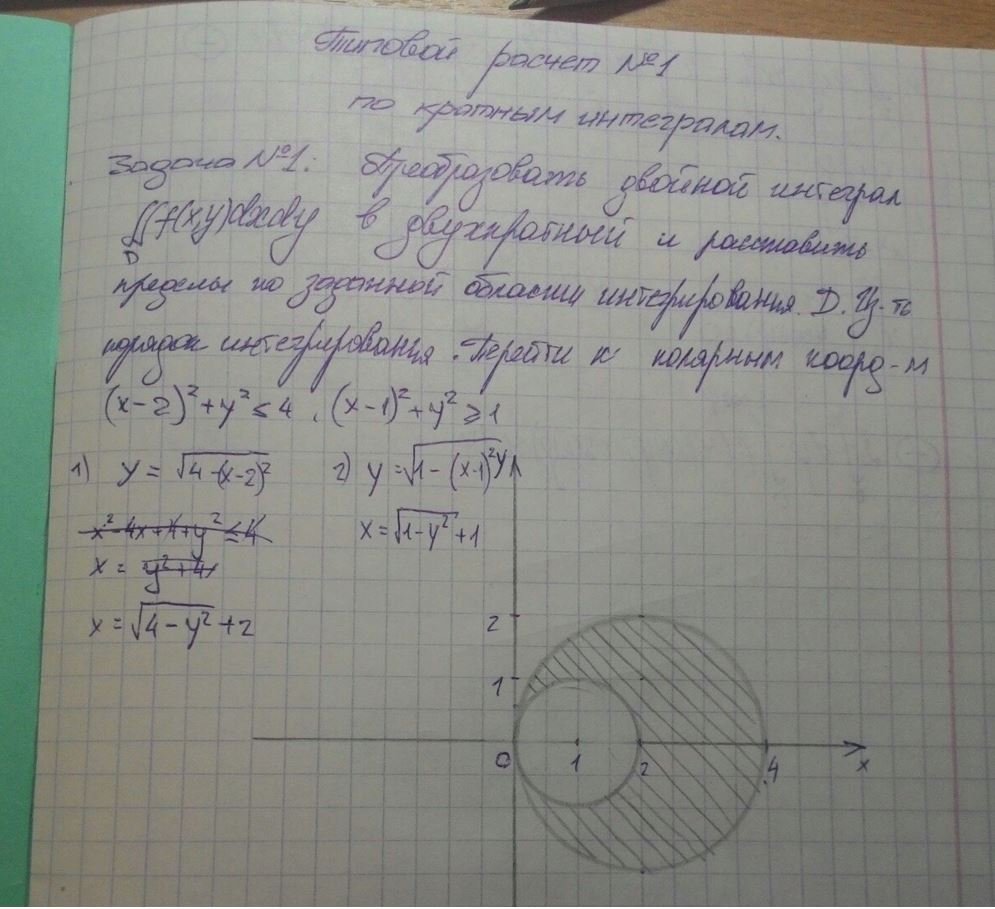 Типовой расчет №1
по кратным интегралам.
Задача №1: Преобразовать двойной интеграл
∬f(x,y)dxdy в двухкратный и расставить
D
пределы по заданной области интегрирования.
порядок интегрирования. Перейти к полярным коорд-м
(x-2)²+y²≤4, (x-1)²+y²≥1
1) y=√4-(x-2)² 2) y=√1-(x-1)² y
x²-4x+4+y²≤4 x=√1-y²+1
x= y²+4
x=√4-y²+2
2
1
0 1 2 4 x